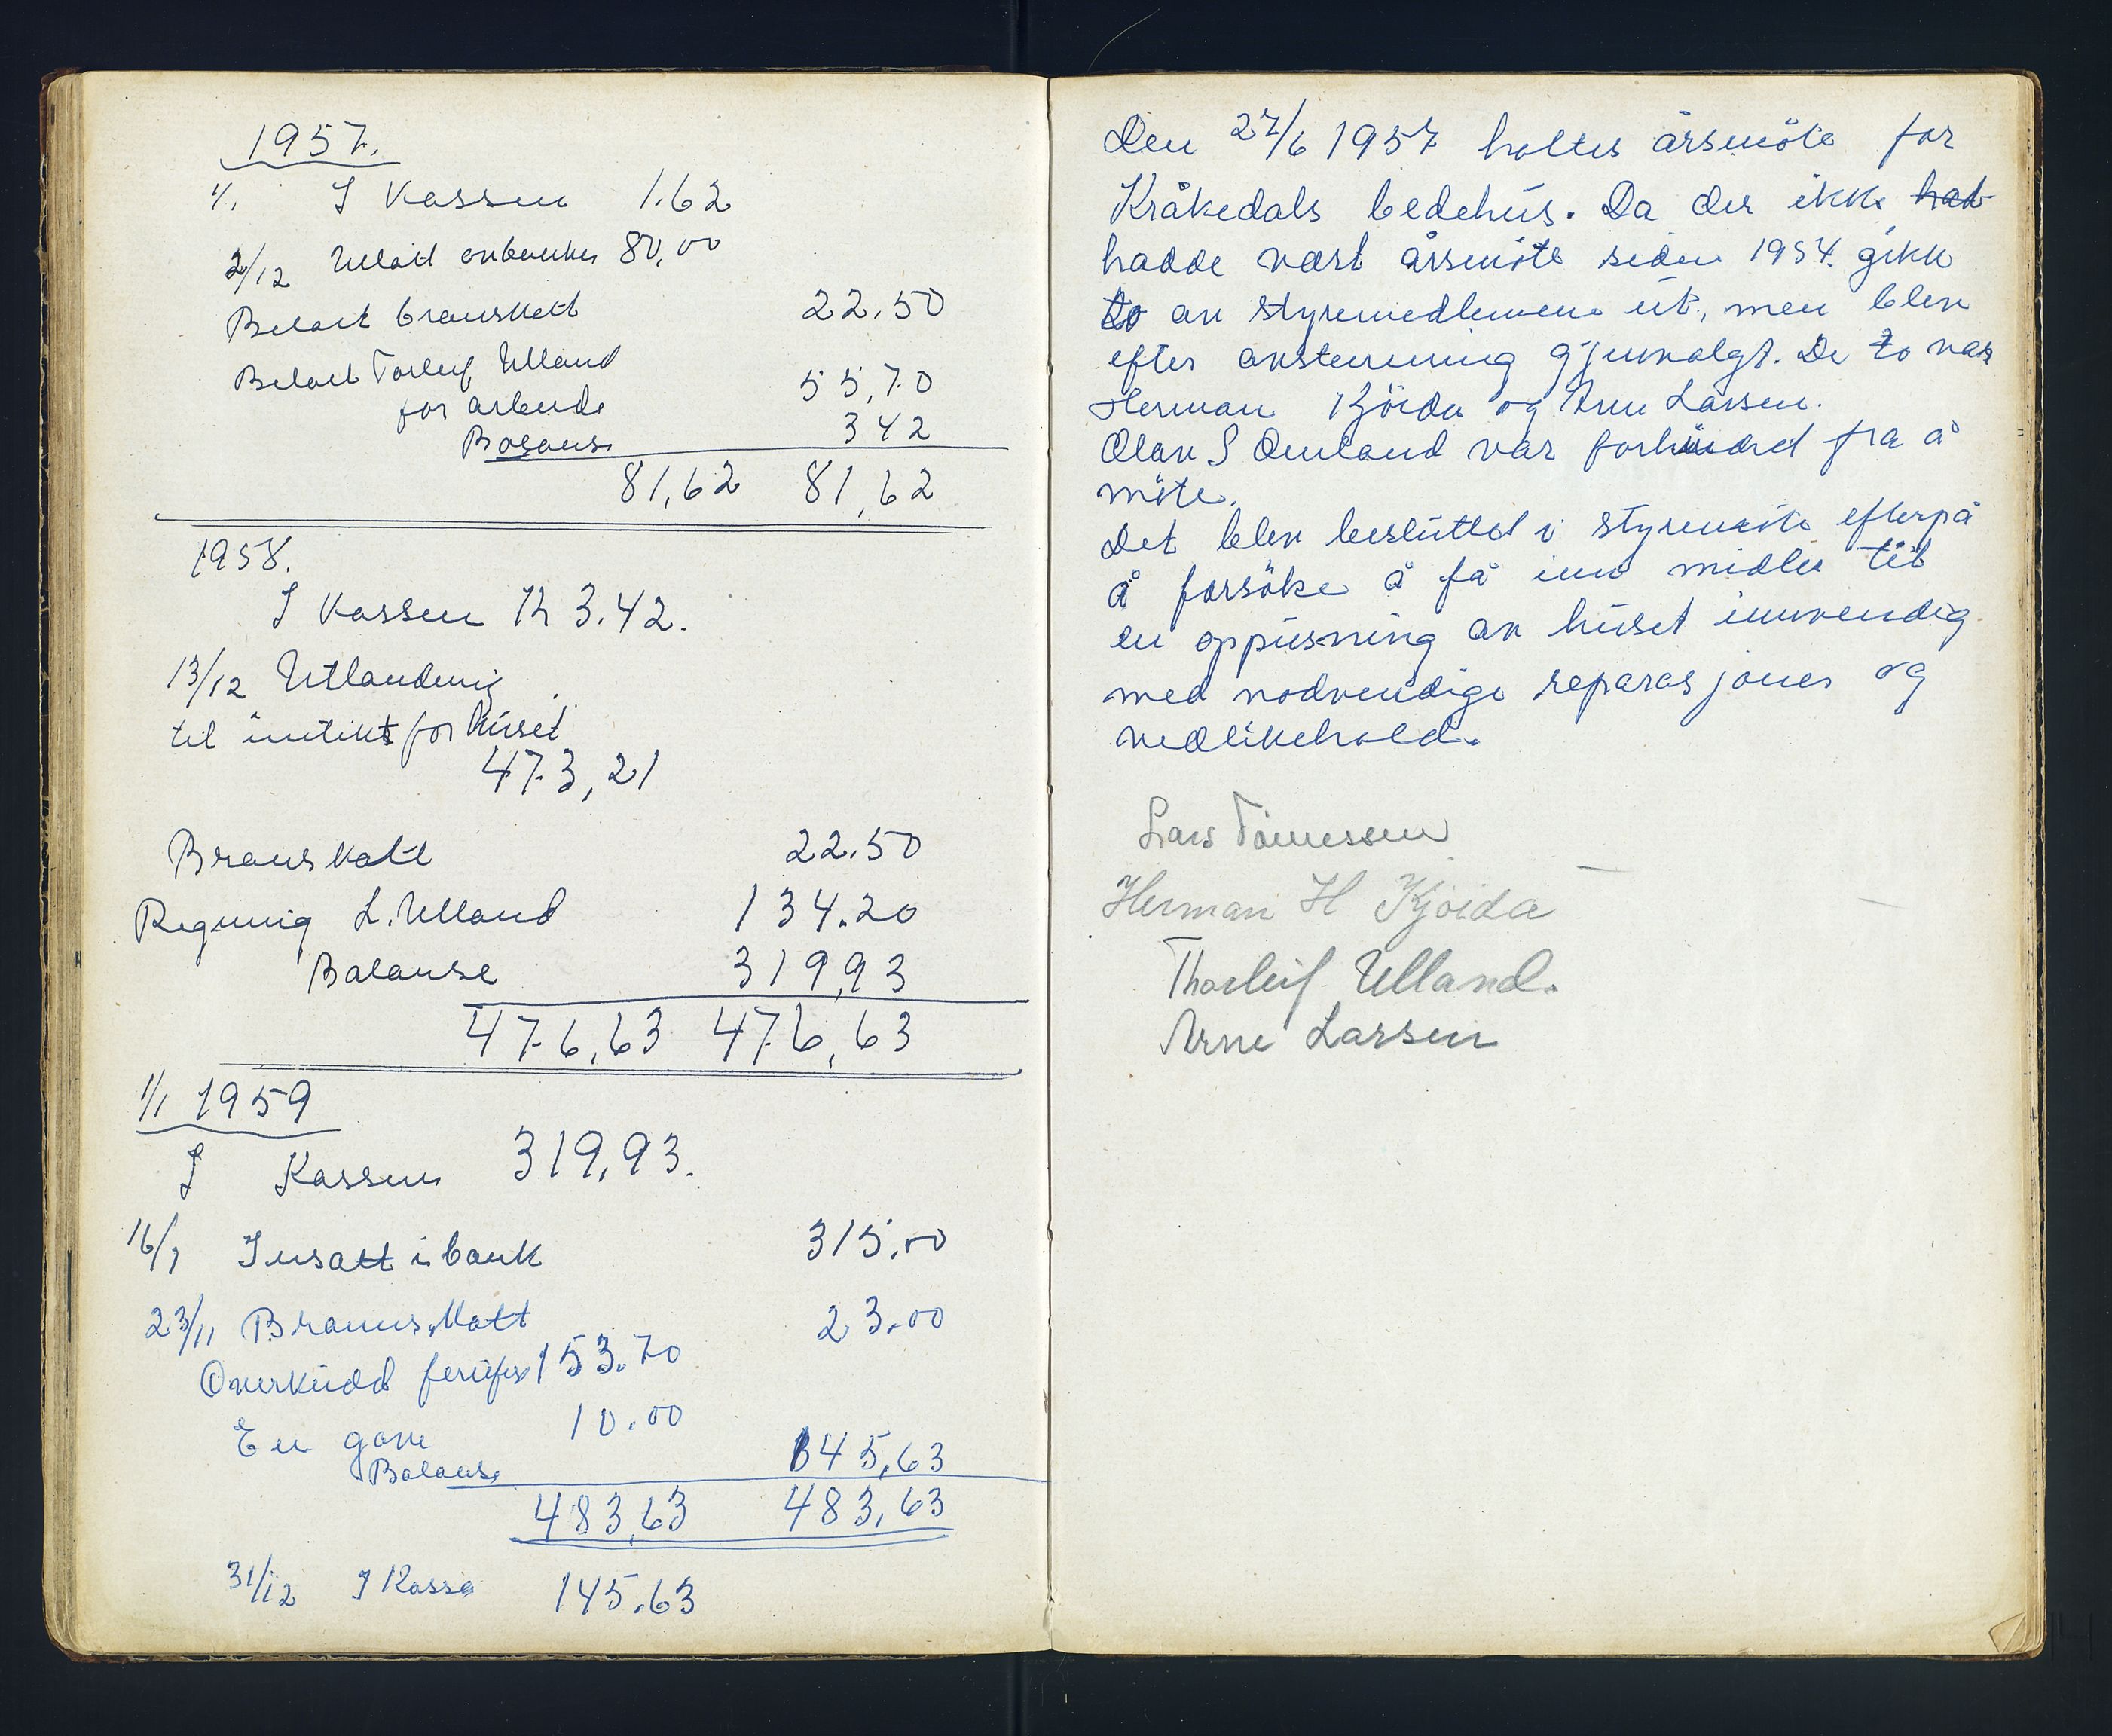 1957.
1/1 I Kassen 1.62
2/12 Utlatt avbanken 80,00
Betalt branskatt 22.50
Betalt Torleif Ulland
for arbeide 55,70
Balanse 342
81,62 81,62
1958.
I Kassen Kr 3.42.
13/12 Utlandning
til inntekt for huset
473,21
Branskatt 22.50
Regning L. Ulland 134.20
Balanse 319,93
476,63 476,63
1/1 1959
I Kassen 319,93.
16/1 Insatt i bank 315,00
23/11 Brannskatt 23.00
Overskudd 153.70
En gave 10.00
Balanse 145,63
483,63 483,63
31/12 I Kassa 145.63
Den 27/6 1957 holtes årsmöte for
Kråkedals bedehus. Da der ikke hat
hadde vært årsmöte siden 1954. gikk
to av styremedlemene ut, men blev
efter avstemning gjenvalgt. De to var
Herman Kjöida og Arne Larsen.
Olav S Omland var forhindred fra å
möte.
Det blev besluttet i styremöte efterpå
å forsöke å få inn midler til
en oppusning av huset innvendig
med nödvendige reparasjoner og
vedlikehold.
Lars Tönnessen
Herman H Kjöida
Thorleif Ulland.
Arne Larsen